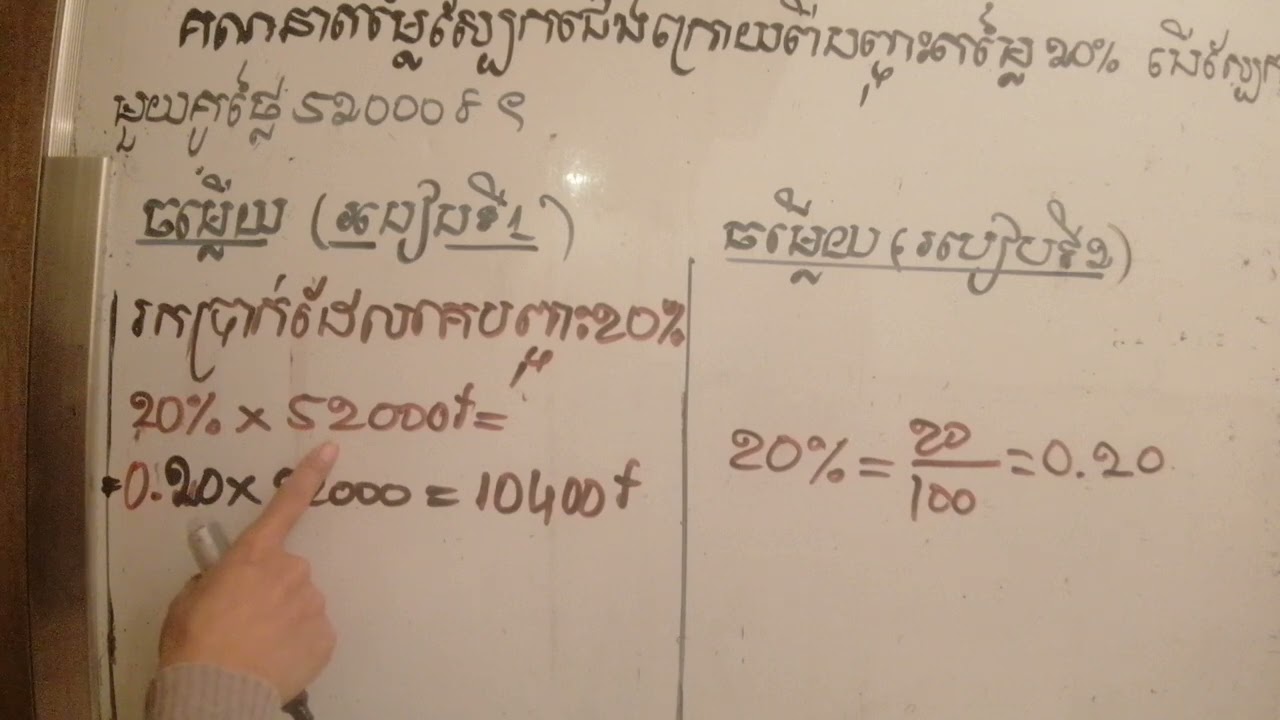 គណនាតម្លៃស្បែកជើងក្រោយពីបញ្ចុះតម្លៃ 20% បើស្បែក
មួយគូថ្លៃ 52000៛ ។
ចម្លើយ (របៀបទី1)
រកប្រាក់ដែលគេបញ្ចុះ20%
20% × 52000៛ =
= 0.20 × 52000 = 10400៛
ចម្លើយ (របៀបទី2)
20% = 20/100 = 0.20